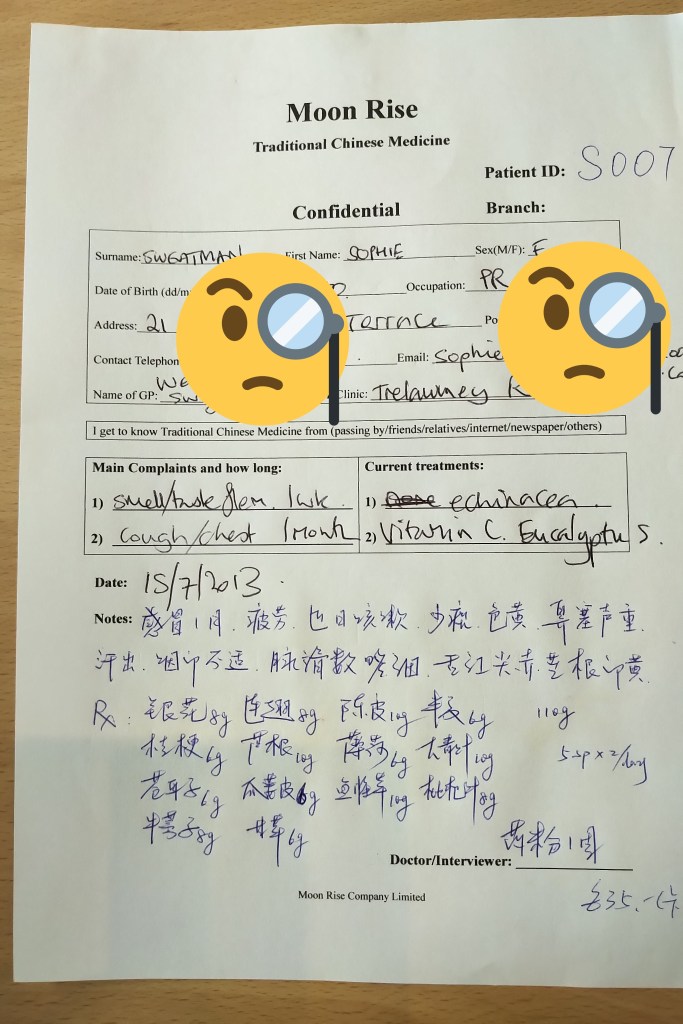 Moon Rise
Traditional Chinese Medicine
Patient ID: S007
Confidential Branch:
Surname: SWEATMAN First Name: SOPHIE Sex(M/F): F
Date of Birth (dd/m Occupation: PR
Address: 21 Terrace Po
Contact Telephon Email: Sophie
Name of GP: Clinic: Trelawney R
I get to know Traditional Chinese Medicine from (passing by/friends/relatives/internet/newspaper/others)
Main Complaints and how long: Current treatments:
1) smell/taste flem. 1wk. 1) echinacea.
2) cough/chest 1 Month 2) Vitamin C. Eucalyptus.
Date: 15/7/2013.
Notes: 感冒1月.疲劳.近日咳嗽.少痰.色黄.鼻塞声重.
汗出.咽不适.脉滑数.舌红尖赤.苔根黄.
Rx: 银花8g 连翘8g 陈皮10g 6g 110g
桔梗6g 芦根10g 薄荷6g 大青叶10g 5sp x 2/day
苍耳子6g 瓜蒌皮6g 鱼腥草10g 枇杷叶8g
牛蒡子8g 甘草6g
药粉1周
Doctor/Interviewer:
£35.-
Moon Rise Company Limited